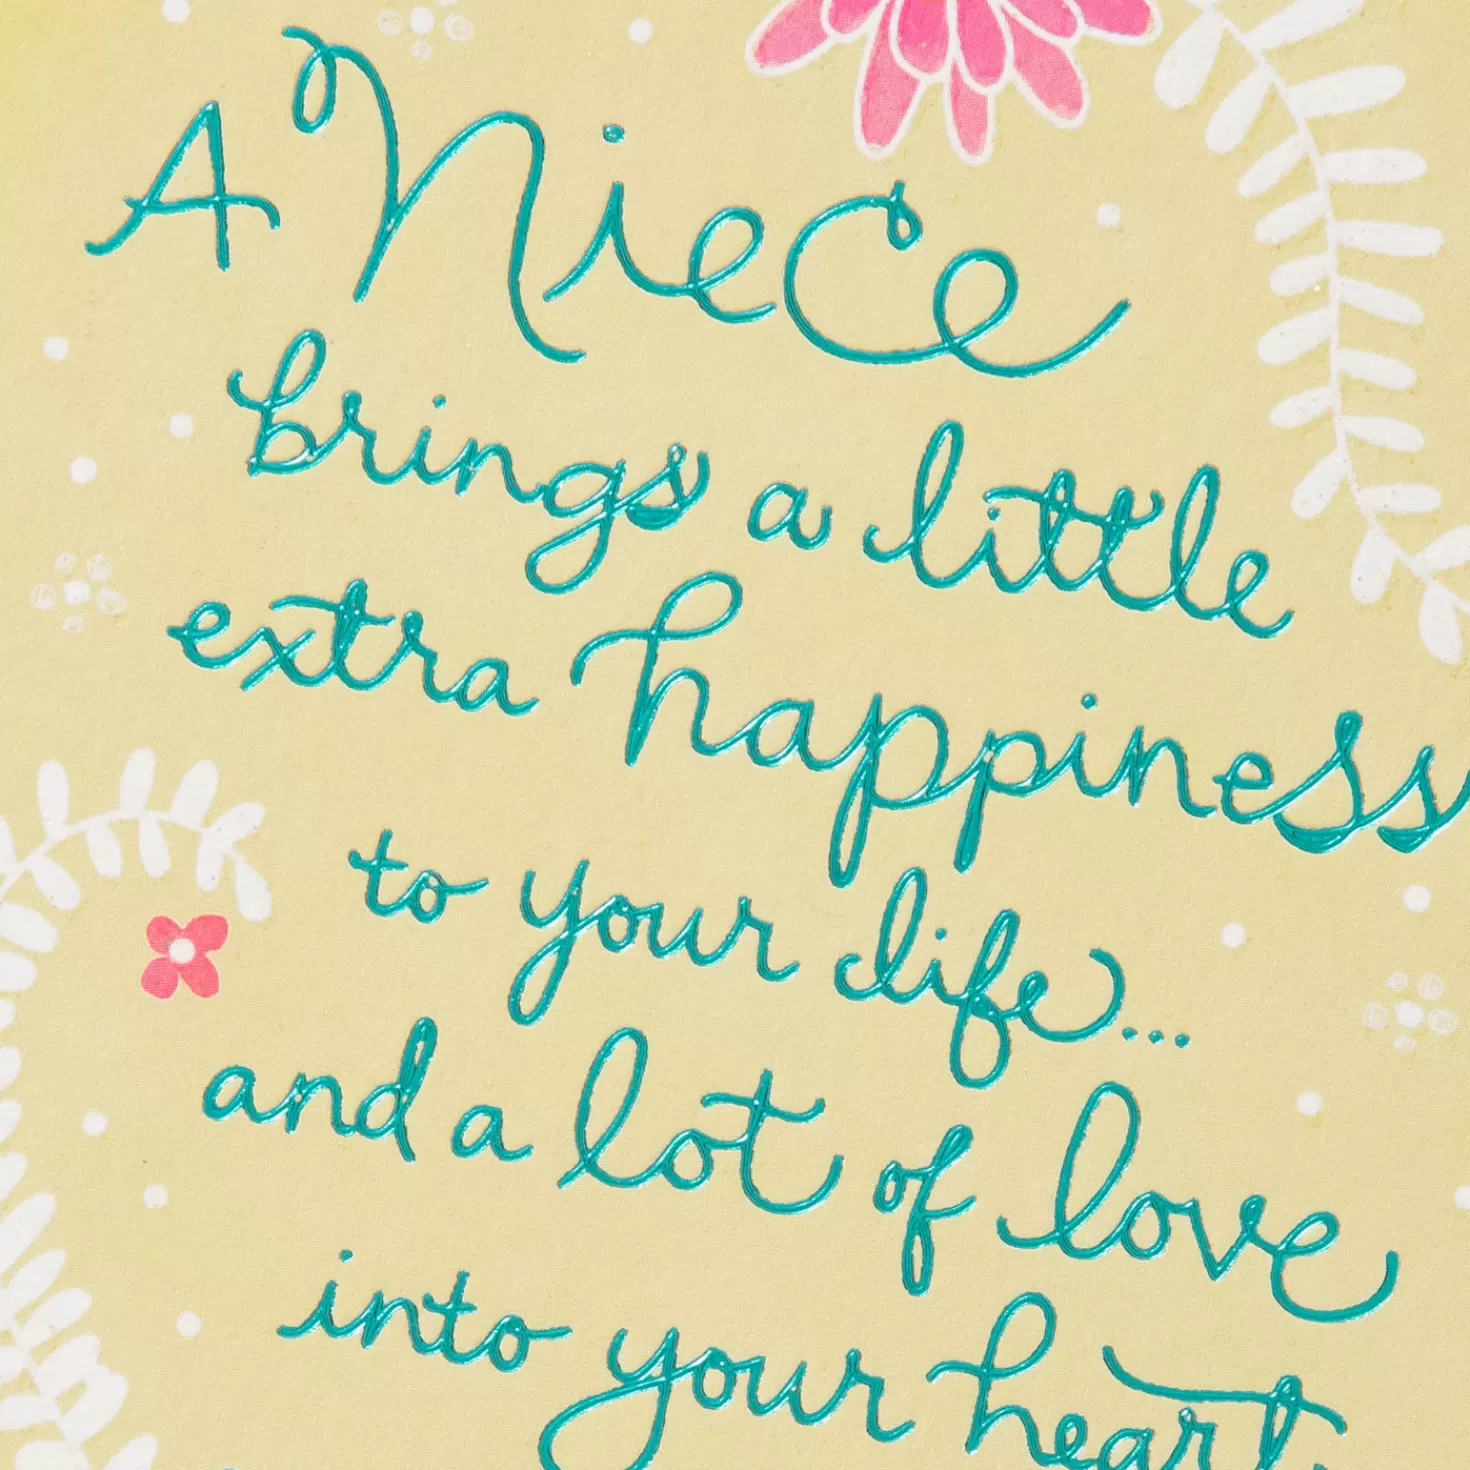 A Niece
brings a little
extra happiness
to your life...
and a lot of love
into your heart.